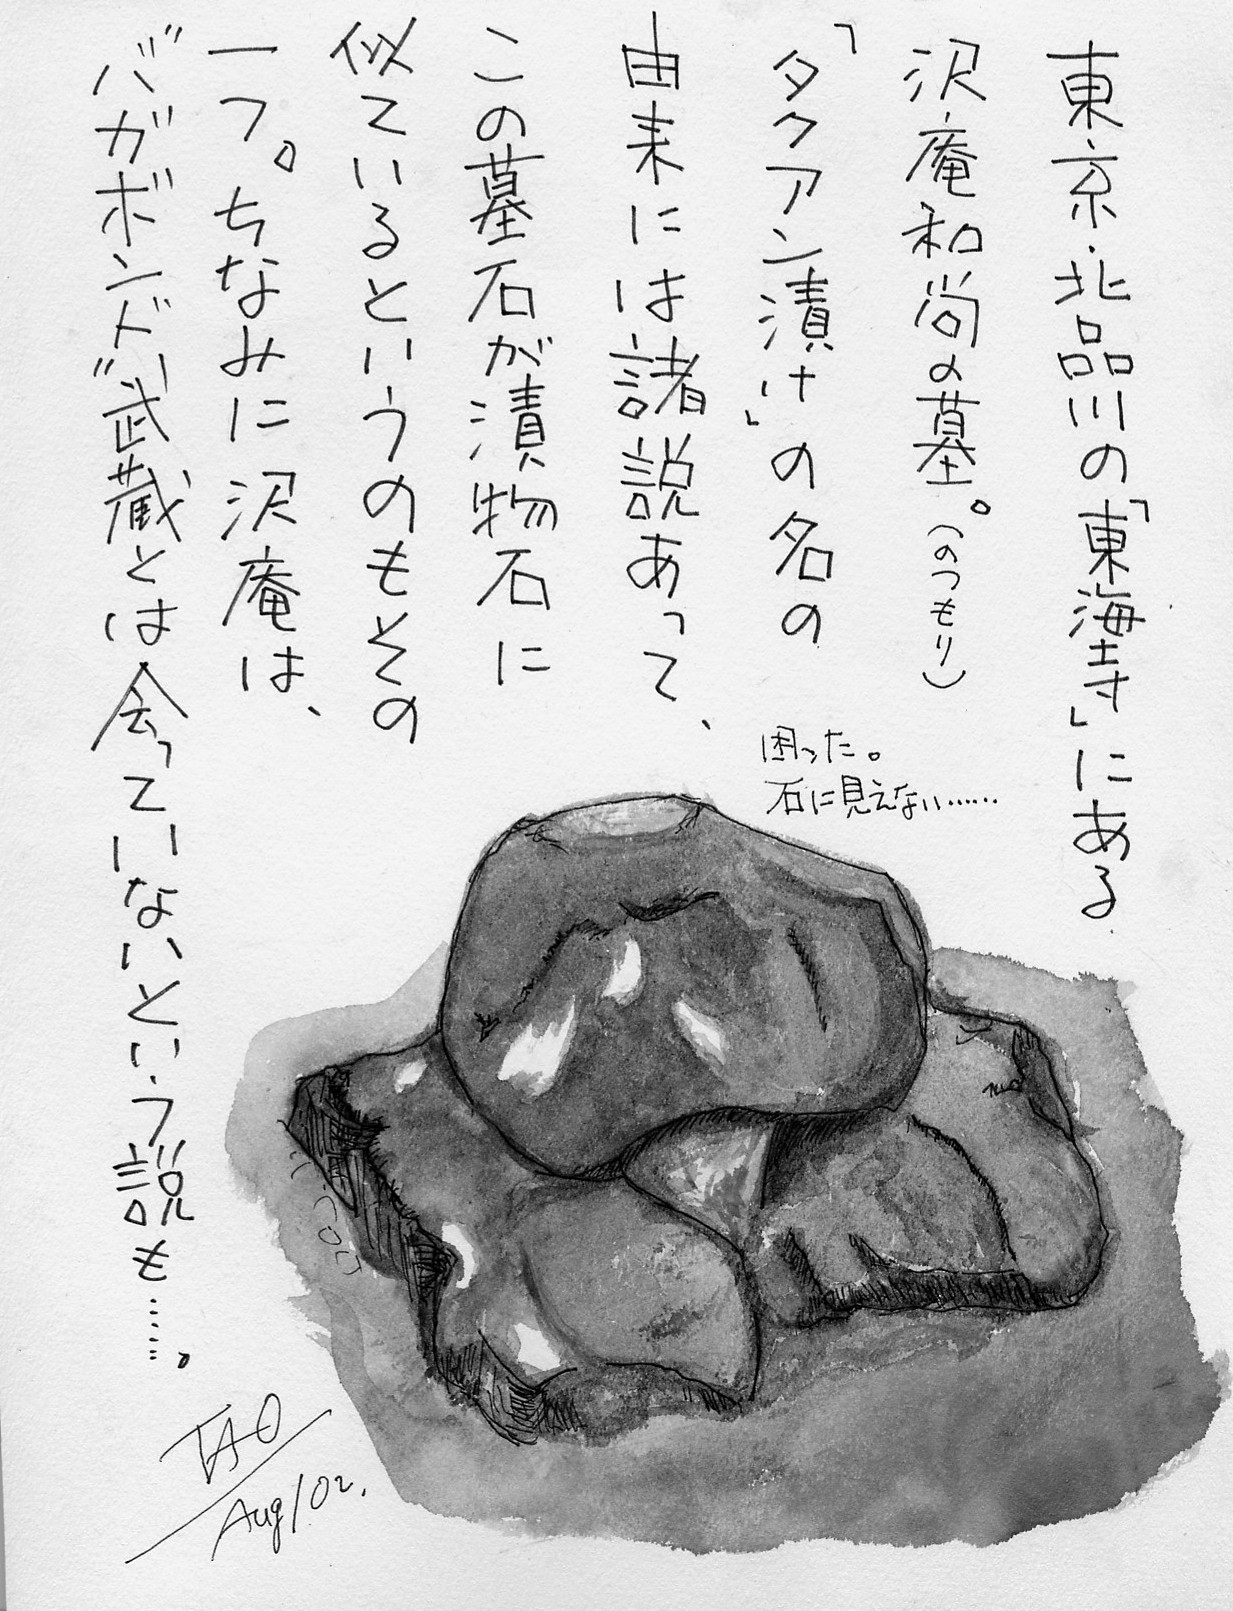 東京・北品川の「東海寺」にある
沢庵和尚の墓。(のつもり)
「タクアン漬け」の名の
由来には諸説あって、
この墓石が漬物石に
似ているというのもその
一つ。ちなみに沢庵は、
"バガボンド"武蔵とは会っていないという説も……。
困った。
石に見えない……
TAO
Aug/02.